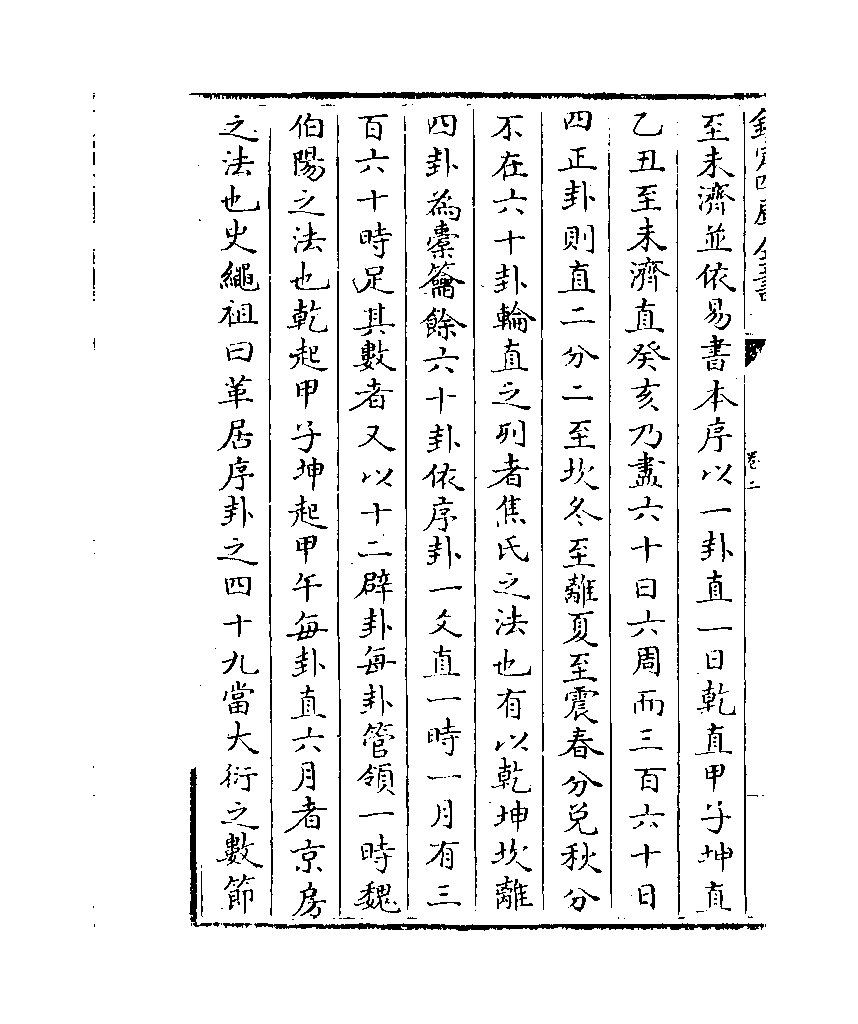 欽定四庫全書
卷二
至未濟並依易書本序以一卦直一日乾直甲子坤直
乙丑至未濟直癸亥乃盡六十日六周而三百六十日
四正卦則直二分二至坎冬至離夏至震春分兌秋分
不在六十卦輪直之列者焦氏之法也有以乾坤坎離
四卦為橐籥餘六十卦依序卦一爻直一時一月有三
百六十時足其數者又以十二辟卦每卦管領一時魏
伯陽之法也乾起甲子坤起甲午每卦直六月者京房
之法也史繩祖曰革居序卦之四十九當大衍之數節